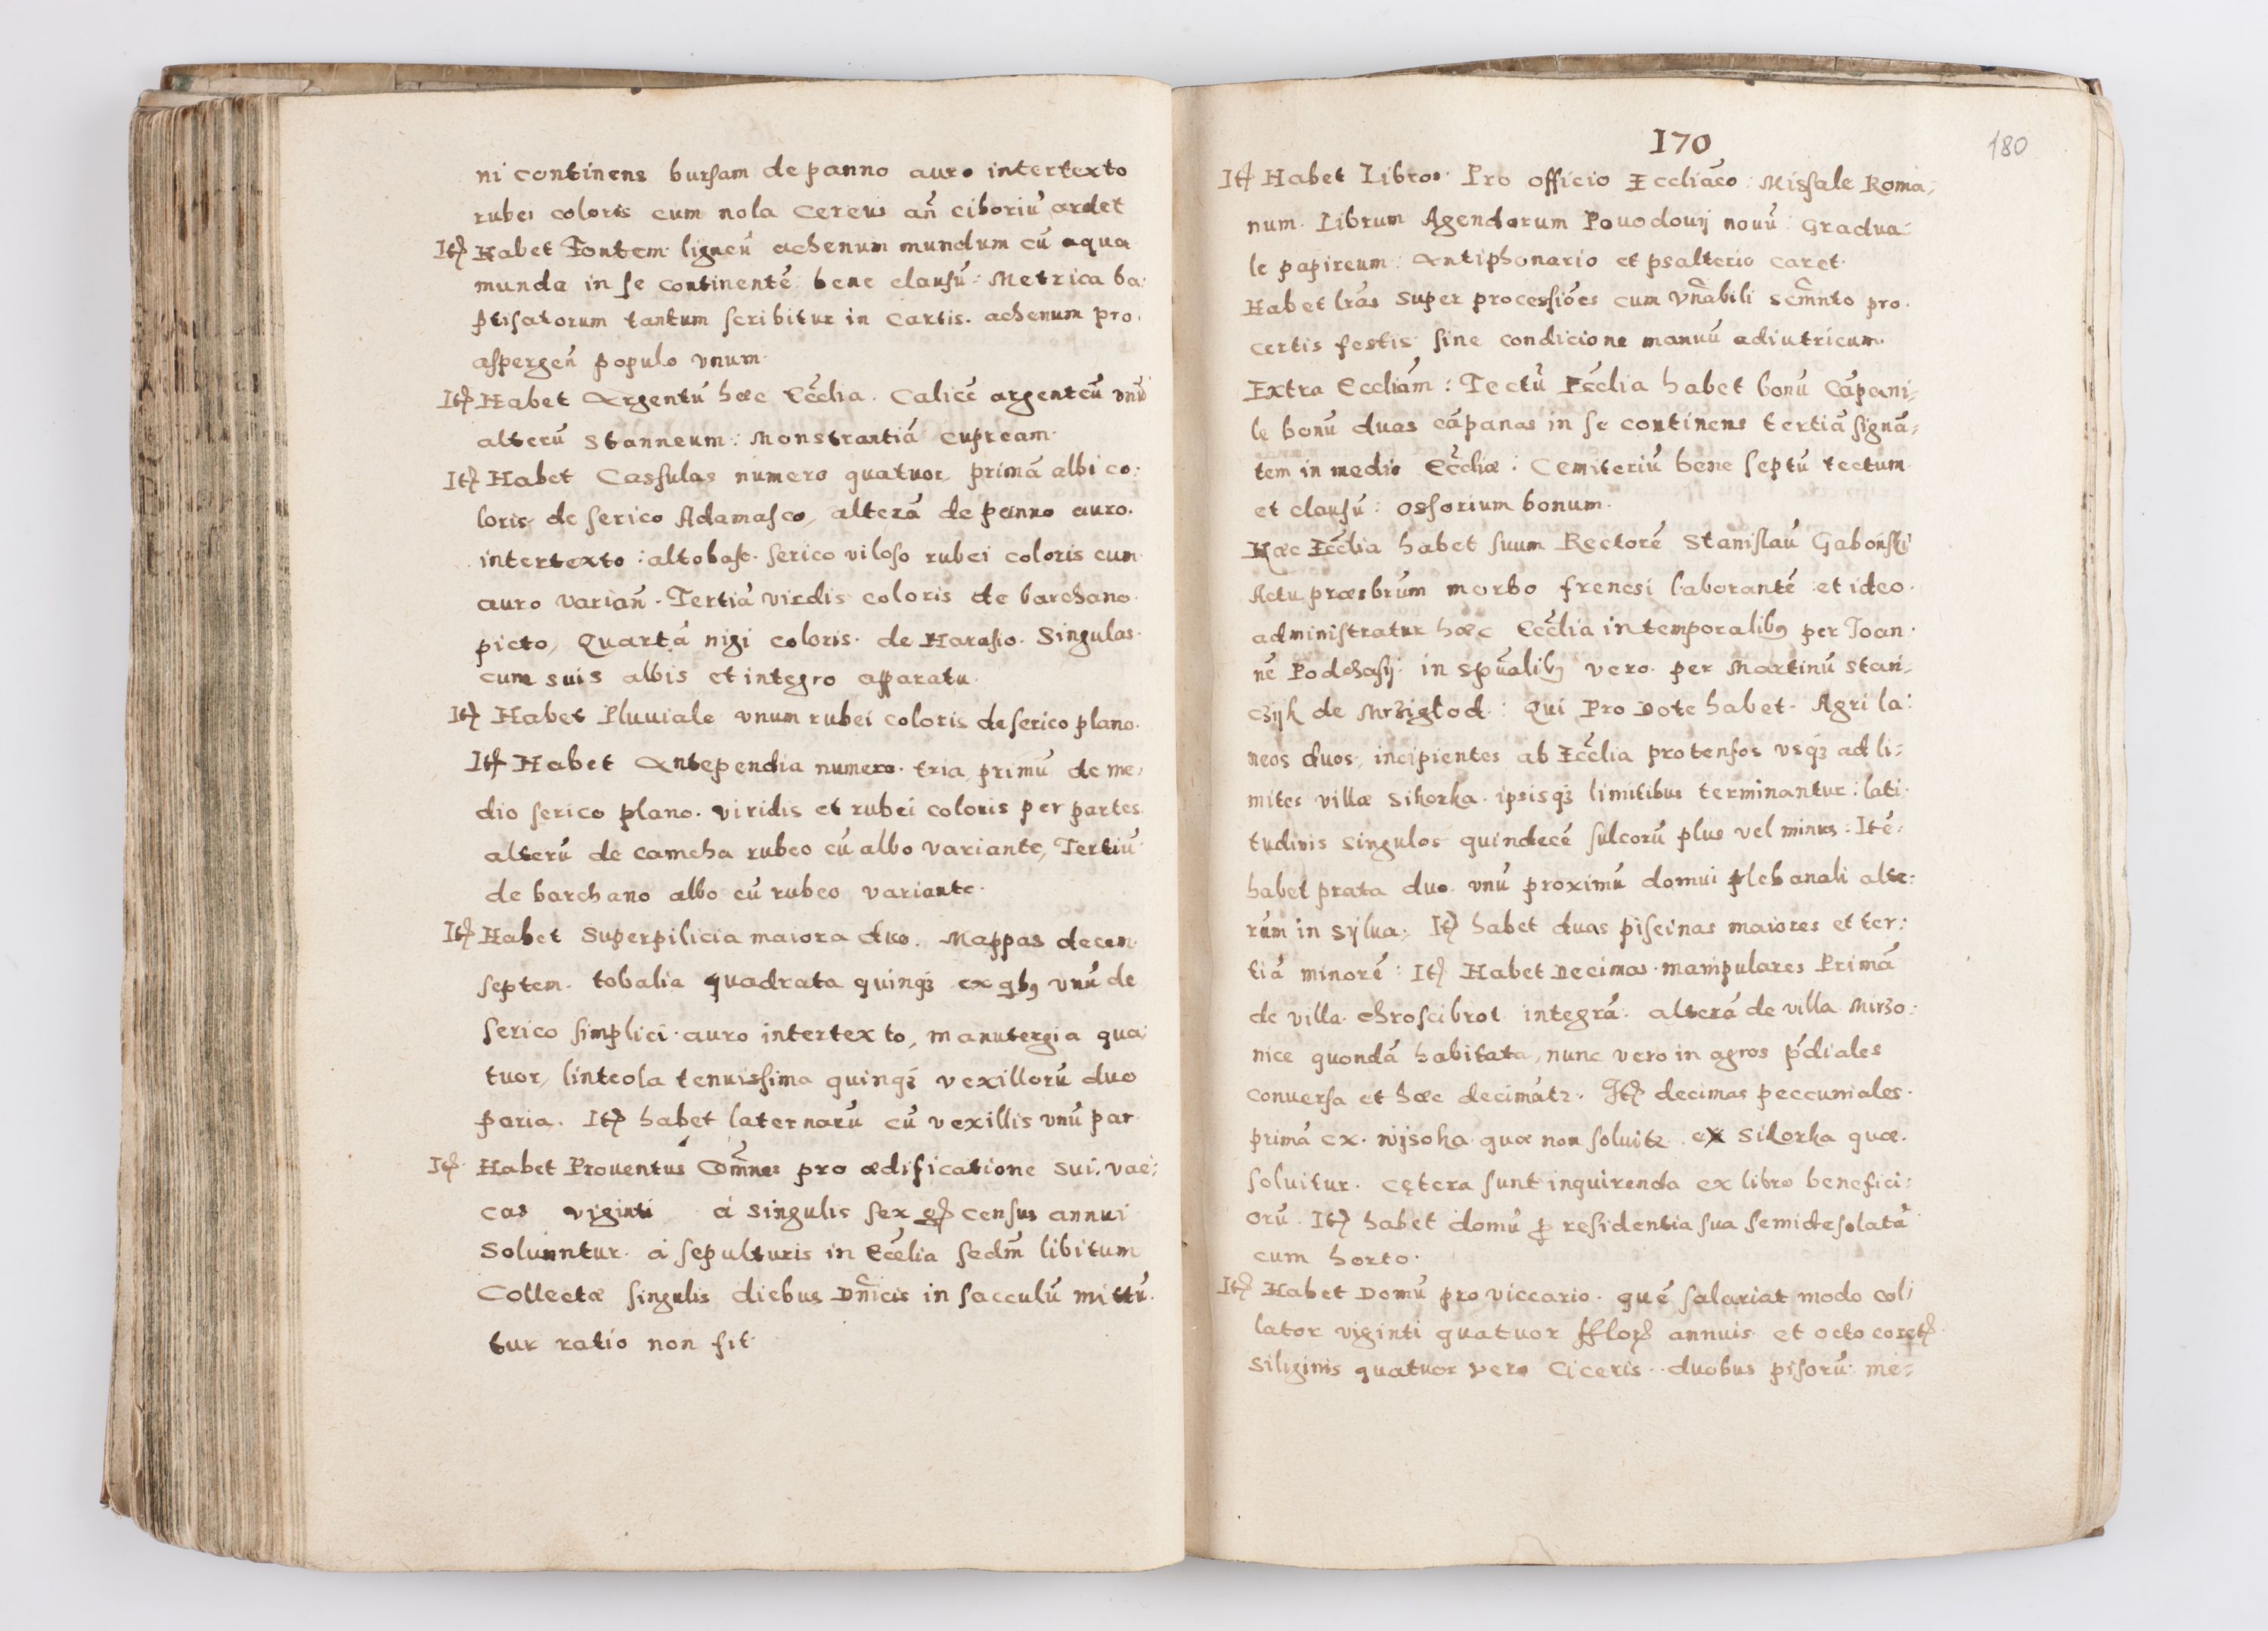 ni continens bursam de panno auro intertexto
rubei coloris cum nola Cereus añ ciboriũ ardet
Itẽ Habet Fontem ligneũ achenum mundum cũ aqua
munda in se continentẽ bene clausũ: Metrica ba:
ptisatorum tantum scribitur in Cartis. achenum pro.
aspergeñ populo vnum.
Itẽ Habet Argentũ hæc Ecc̃lia. Calicẽ argenteũ vnũ
alterũ Stanneum: Monstrantiã Cupream.
Itẽ Habet Cassulas numero quatuor, primã albi co:
loris de serico Adamasco, alterã de panno auro.
intertexto: altobass. serico viloso rubei coloris cum
auro variañ. Tertiã virdis coloris de barchano.
picto, Quartã nigi coloris. de Harasio. Singulas.
cum suis albis et integro apparatu.
Itẽ Habet Pluuiale vnum rubei coloris de serico plano.
Itẽ Habet Antependia numero. tria, primũ de me,
dio serico plano. viridis et rubei coloris per partes
alterũ de camcha rubeo cũ albo variante, Tertiũ
de barchano albo cũ rubeo variante.
Itẽ Habet Superpilicia maiora duo. Mappas decem
septem. tobalia quadrata quinq3 ex qb9 vnũ de
serico simplici. auro intertexto, manutergia qua:
tuor, linteola tenuissima quinq3 vexillorũ duo
paria. Itẽ habet laternarũ cũ vexillis vnũ par.
Itẽ. Habet Prouentus Om̃nes pro ædificatione sui. vac:
cas viginti à singulis sex census annui
Soluuntur. à sepulturis in Ecc̃lia secdm̃ libitum
Collectæ singulis diebus Dñicis in sacculũ mittũ.
tur ratio non fit.
170
180
Itẽ Habet Libros. Pro officio Eccliãco: Missale Roma,
num. Librum Agendorum Pouodouij nouũ: Gradua:
le papireum: Antiphonario et psalterio caret.
Habet lr̃as super processiões cum vñabili Sc̃mnto pro.
certis festis sine condicione manuũ adiutricum.
Extra Eccliãm: Tectũ Ecc̃lia habet bonũ Cãpani:
le bonũ duas cãpanas in se continens tertiã signã:
tem in medio Ecc̃liæ: Cemiteriũ bene septũ tectum
et clausũ: ossorium bonum.
Hæc Ecc̃lia habet suum Rectorẽ Stanislaũ Gabońsky
Actu præsbrũm morbo frenesi laborantẽ et ideo.
administratur hæc Ecc̃lia in temporalib9 per Joan.
nẽ Podchasij. in spũalib9 vero. per Martinũ Stani,
czijk de Mrzigłod: Qui Pro Dote habet. Agri la:
neos duos, incipientes ab Ecc̃lia protensos vsq3 ad li:
mites villæ Sikorka. ipsisq3 limitibus terminantur: lati.
tudinis singulos quindecẽ sulcorũ plus vel minus: Itẽ:
habet prata duo. vnũ proximũ domui plebanali alte:
rum in sylua,. Itẽ habet duas piscinas maiores et ter:
tiã minorẽ: Itẽ Habet Decimas. manipulares Primã
de villa. Chroscibrot integrã. alterã de villa Mirzo:
nice quondã habitata, nunc vero in agros p̃diales
conuersa et hæc decimãt2. Itẽ decimas peccuniales.
primã ex. nijsoka quæ non soluit2. ex Sikorka quæ.
soluitur. cętera sunt inquirenda ex libro benefici:
orũ. Itẽ habet domũ ꝑ residentia sua semidesolatã
cum horto.
Itẽ Habet Domũ pro viccario. quẽ salariat modo col,
lator viginti quatuor fflor annuis et octo coretẽ.
Siliginis quatuor vero Ciceris.. duobus pisorũ. me: